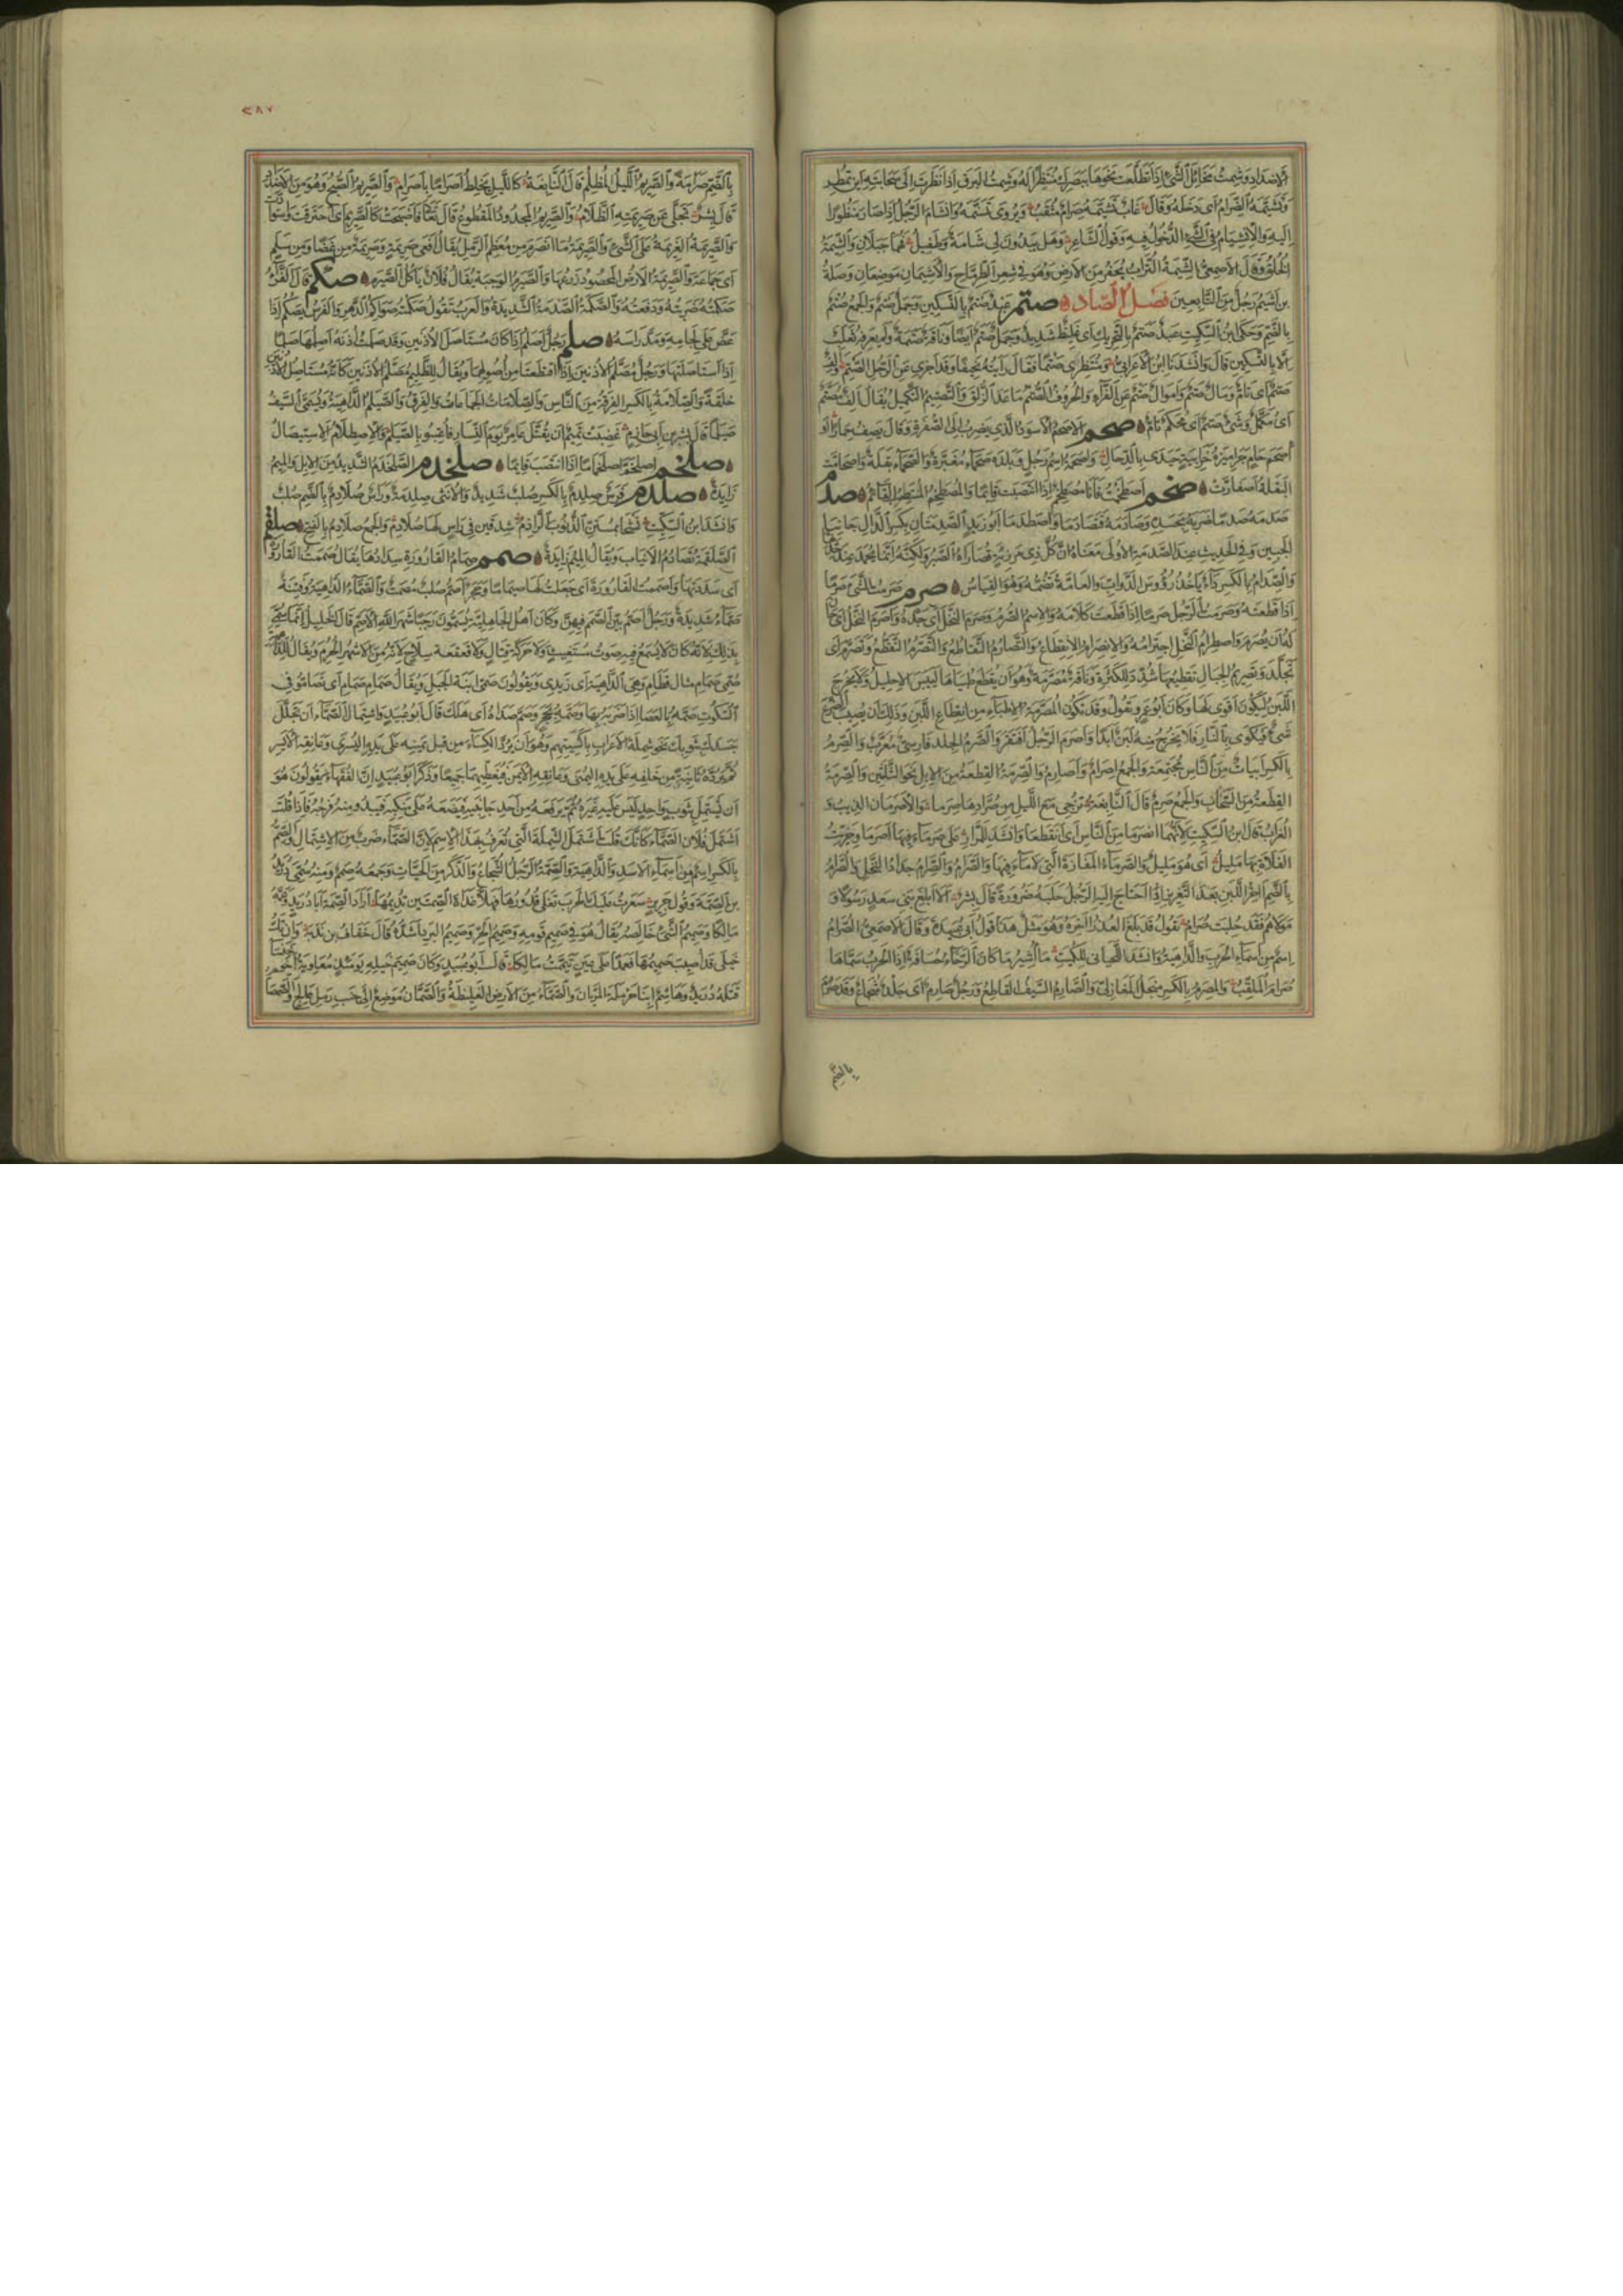 الاضداد وشمت مخائل الشئ اذا تطلعت نحوها ببصرك منتظرا له وشمت البرق اذا نظرت الى سحابته اين تمطر
وتشيمه الضرام اى دخله وقال غاب تشيمه ضرام مثقب ويروى تسنمه وانشام الرجل اذا صار منظورا
اليه والانشيام فى الشئ الدخول فيه وقول الشاعر وهل يبدون لى شامة وطفيل فهما جبلان والشيمة
الخلق وقال الاصمعى الشيمة التراب يحفر من الارض وهو فى شعر الطرماح والاشيمان موضعان وصلة
بن اشيم رجل من التابعين فصل الصاد صتم عبد صتم بالتسكين وجمل صتم والجمع صتم
بالضم وحكى ابن السكيت عبد صتم بالتحريك اى غليظ شديد وجمل صتم ايضا وناقة صتمة ولم يعرف ثعلب
الا بالتسكين قال وانشدنا ابن الاعرابى ومنتظرى صتما فقال رايته نحيفا وقد اجزى عن الرجل الصتم
صتم اى تام ومال صتم واموال صتم عن الفراء والحروف الصتم ما عدا الزلق والتصتيم التكميل يقال الف مصتم
اى مكمل وشئ صتم اى محكم تام صحم الاصحم الاسود الذى يضرب الى الصفرة وقال يصف حمارا او
اصحم حام جراميزه حزابية حيدى بالدحال واصحمة اسم رجل وبلدة صحماء مغبرة والصحماء بقلة واصحامت
البقلة اصفارت صخم اصطخمت فانا مصطخم اذا انتصبت قائما والمصطخم المنتصب القائم صدم
صدمه صدما ضربه بجسده وصادمه فتصادما واصطدما ابو زيد الصدمتان بكسر الدال جانبا
الجبين وفى الحديث عند الصدمة الاولى معناه ان كل ذى مرزئة قصاراه الصبر ولكنه انما يحمد عند حدتها
والصدام بالكسر داء ياخذ رؤوس الدواب والعامة تضمه وهو القياس صرم صرمت الشئ صرما
اذا قطعته وصرمت الرجل صرما اذا قطعت كلامه والاسم الصرم وصرم النخل اى جده واصرم النخل اى حان
له ان يصرم واصطرام النخل اجترامه والانصرام الانقطاع والتصارم التقاطع والتصرم التقطع وتصرم اى
تجلد وتصريم الحبال تقطيعها شدد للكثرة وناقة مصرمة وهو ان يقطع طبياها ليبس الاحليل ولا يخرج
اللبن ليكون اقوى لها وكان ابو عمرو يقول وقد تكون المصرمة الاطباء من انقطاع اللبن وذلك ان يصيب الضرع
شئ فيكوى بالنار فلا يخرج منه لبن ابدا واصرم الرجل افتقر والصرم الجلد فارسى معرب والصرم
بالكسر ابيات من الناس مجتمعة والجمع اصرام واصارم والصرمة القطعة من الابل نحو الثلثين والصرمة
القطعة من السحاب والجمع صرم قال النابغة تزجى مع الليل من صرادها صرما والاصرمان الذيب و
الغراب قال ابن السكيت لانهما انصرما من الناس اى انقطعا وانشد للمرار على صرماء فيها اصرماها وخريت
الفلاة بها مليل اى هو مليل والصرماء المفازة التى لا ماء فيها والصرام والصرام جداد النخل والصرام
بالضم اخر اللبن بعد التغريز اذا احتاج اليه الرجل حلبه ضرورة قال بشر الا ابلغ بنى سعد رسولا و
مولاهم فقد حلبت صرام تقول قد بلغ العذر اخره وهو مثل هذا قول ابى عبيدة وقال الاصمعى الصرام
اسم من اسماء الحرب والداهية وانشد اللحيانى للكميت مآشير ما كان الرخاء حسافة اذا الحرب سماها
صرام الملقب والصرم بالكسر منجل المغازلى والصارم السيف القاطع ورجل صارم اى جلد شجاع وقد صرم
بالضم
٢٨٧
بالضم صرامة والصريم الليل المظلم قال النابغة كالليل يخلط اصراما باصرام والصريم الصبح وهو من الاضداد
قال بشر تجلى عن صريمته الظلام والصريم المجدود المقطوع قال تعالى فاصبحت كالصريم اى احترقت واسودت
والصريمة العزيمة على الشئ والصريمة ما انصرم من معظم الرمل يقال افعى صريمة وصريمة من غضا ومن سلم
اى جماعة والصريمة الارض المحصود زرعها والصيرم الوجبة يقال فلان ياكل الصيرم صكم قال الفراء
صكمته ضربته ودفعته والصكمة الصدمة الشديدة والعرب تقول صكمته صواكم الدهر والفرس يصكم اذا
عض على لجامه ومد راسه صلم رجل اصلم اذا كان مستاصل الاذنين وقد صلمت اذنه اصلمها صلما
اذا استاصلتها ورجل مصلم الاذنين اذا اقتطعتا من اصولهما ويقال للظليم مصلم الاذنين كانه مستاصل الاذنين
خلقة والصلامة بالكسر الفرقة من الناس والصلامات الجماعات والفرق والصيلم الداهية ويسمى السيف
صيلما قال بشر بن ابى خازم غضبت تميم ان تقتل عامر يوم النسار فاعتبوا بالصيلم والاصطلام الاستيصال
صلخم اصلخم اصلخماما اذا انتصب قايما صلخدم الصلخدم الشديد من الابل والميم
زايدة صلدم فرس صلدم بالكسر صلب شديد والانثى صلدمة وراس صلادم بالضم صلب
وانشد ابن السكيت شدقين فى راس لها صلادم والجمع صلادم بالفتح صلقم
الصلقمة تصادم الانياب ويقال الميم زايدة صمم صمام القارورة سدادها يقال صممت القارورة
اى سددتها واصممت القارورة اى جعلت لها صماما وحجر اصم صلب مصمت والصماء الداهية وفتنة
صماء شديدة ورجل اصم بين الصمم فيهن وكان اهل الجاهلية يسمون رجبا شهر الله الاصم قال الخليل انما سمى
بذلك لانه كان لا يسمع فيه صوت مستغيث ولا حركة قتال ولا قعقعة سلاح لانه من الاشهر الحرم ويقال للداهية
صمى صمام مثال قطام وهى الداهية اى زيدى ويقولون صمى ابنة الجبل ويقال صمام صمام اى تصاموا فى
السكوت وصمه بالعصا اذا ضربه بها وصمه بحجر وصم صداه اى هلك قال ابو عبيد واشتمال الصماء ان تجلل
جسدك بثوبك نحو شملة الاعراب باكسيتهم وهو ان يرد الكساء من قبل يمينه على يده اليسرى وعاتقه الايسر
ثم يرده ثانية من خلفه على يده اليمنى وعاتقه الايمن فيغطيهما جميعا وذكر ابو عبيد ان الفقهاء يقولون هو
ان يشتمل بثوب واحد ليس عليه غيره ثم يرفعه من احد جانبيه فيضعه على منكبه فيبدو منه فرجه فاذا قلت
اشتمل فلان الصماء كانك قلت اشتمل الشملة التى تعرف بهذا الاسم لان الصماء ضرب من الاشتمال والصمة
بالكسر اسم من اسماء الاسد والداهية والصمة الرجل الشجاع والذكر من الحيات وجمعه صمم ومنه سمى دريد
بن الصمة وقول جرير سعرت عليك الحرب تغلى قدورها فهلا غداة الصمتين تديمها اراد الصمة ابا دريد وعمه
مالكا وصميم الشئ خالصه يقال هو فى صميم قومه وصميم الحر وصميم البرد اشده قال خفاف بن ندبة وان تك
خيلى قد اصيب صميمها فعمدا على عين تيممت مالكا قال ابو عبيد وكان صميم خيله يومئذ معاوية اخو خنساء
قتله دريد وهاشم ابنا حرملة المريان والصماء من الارض الغليظة والصمان موضع الى جنب رمل عالج